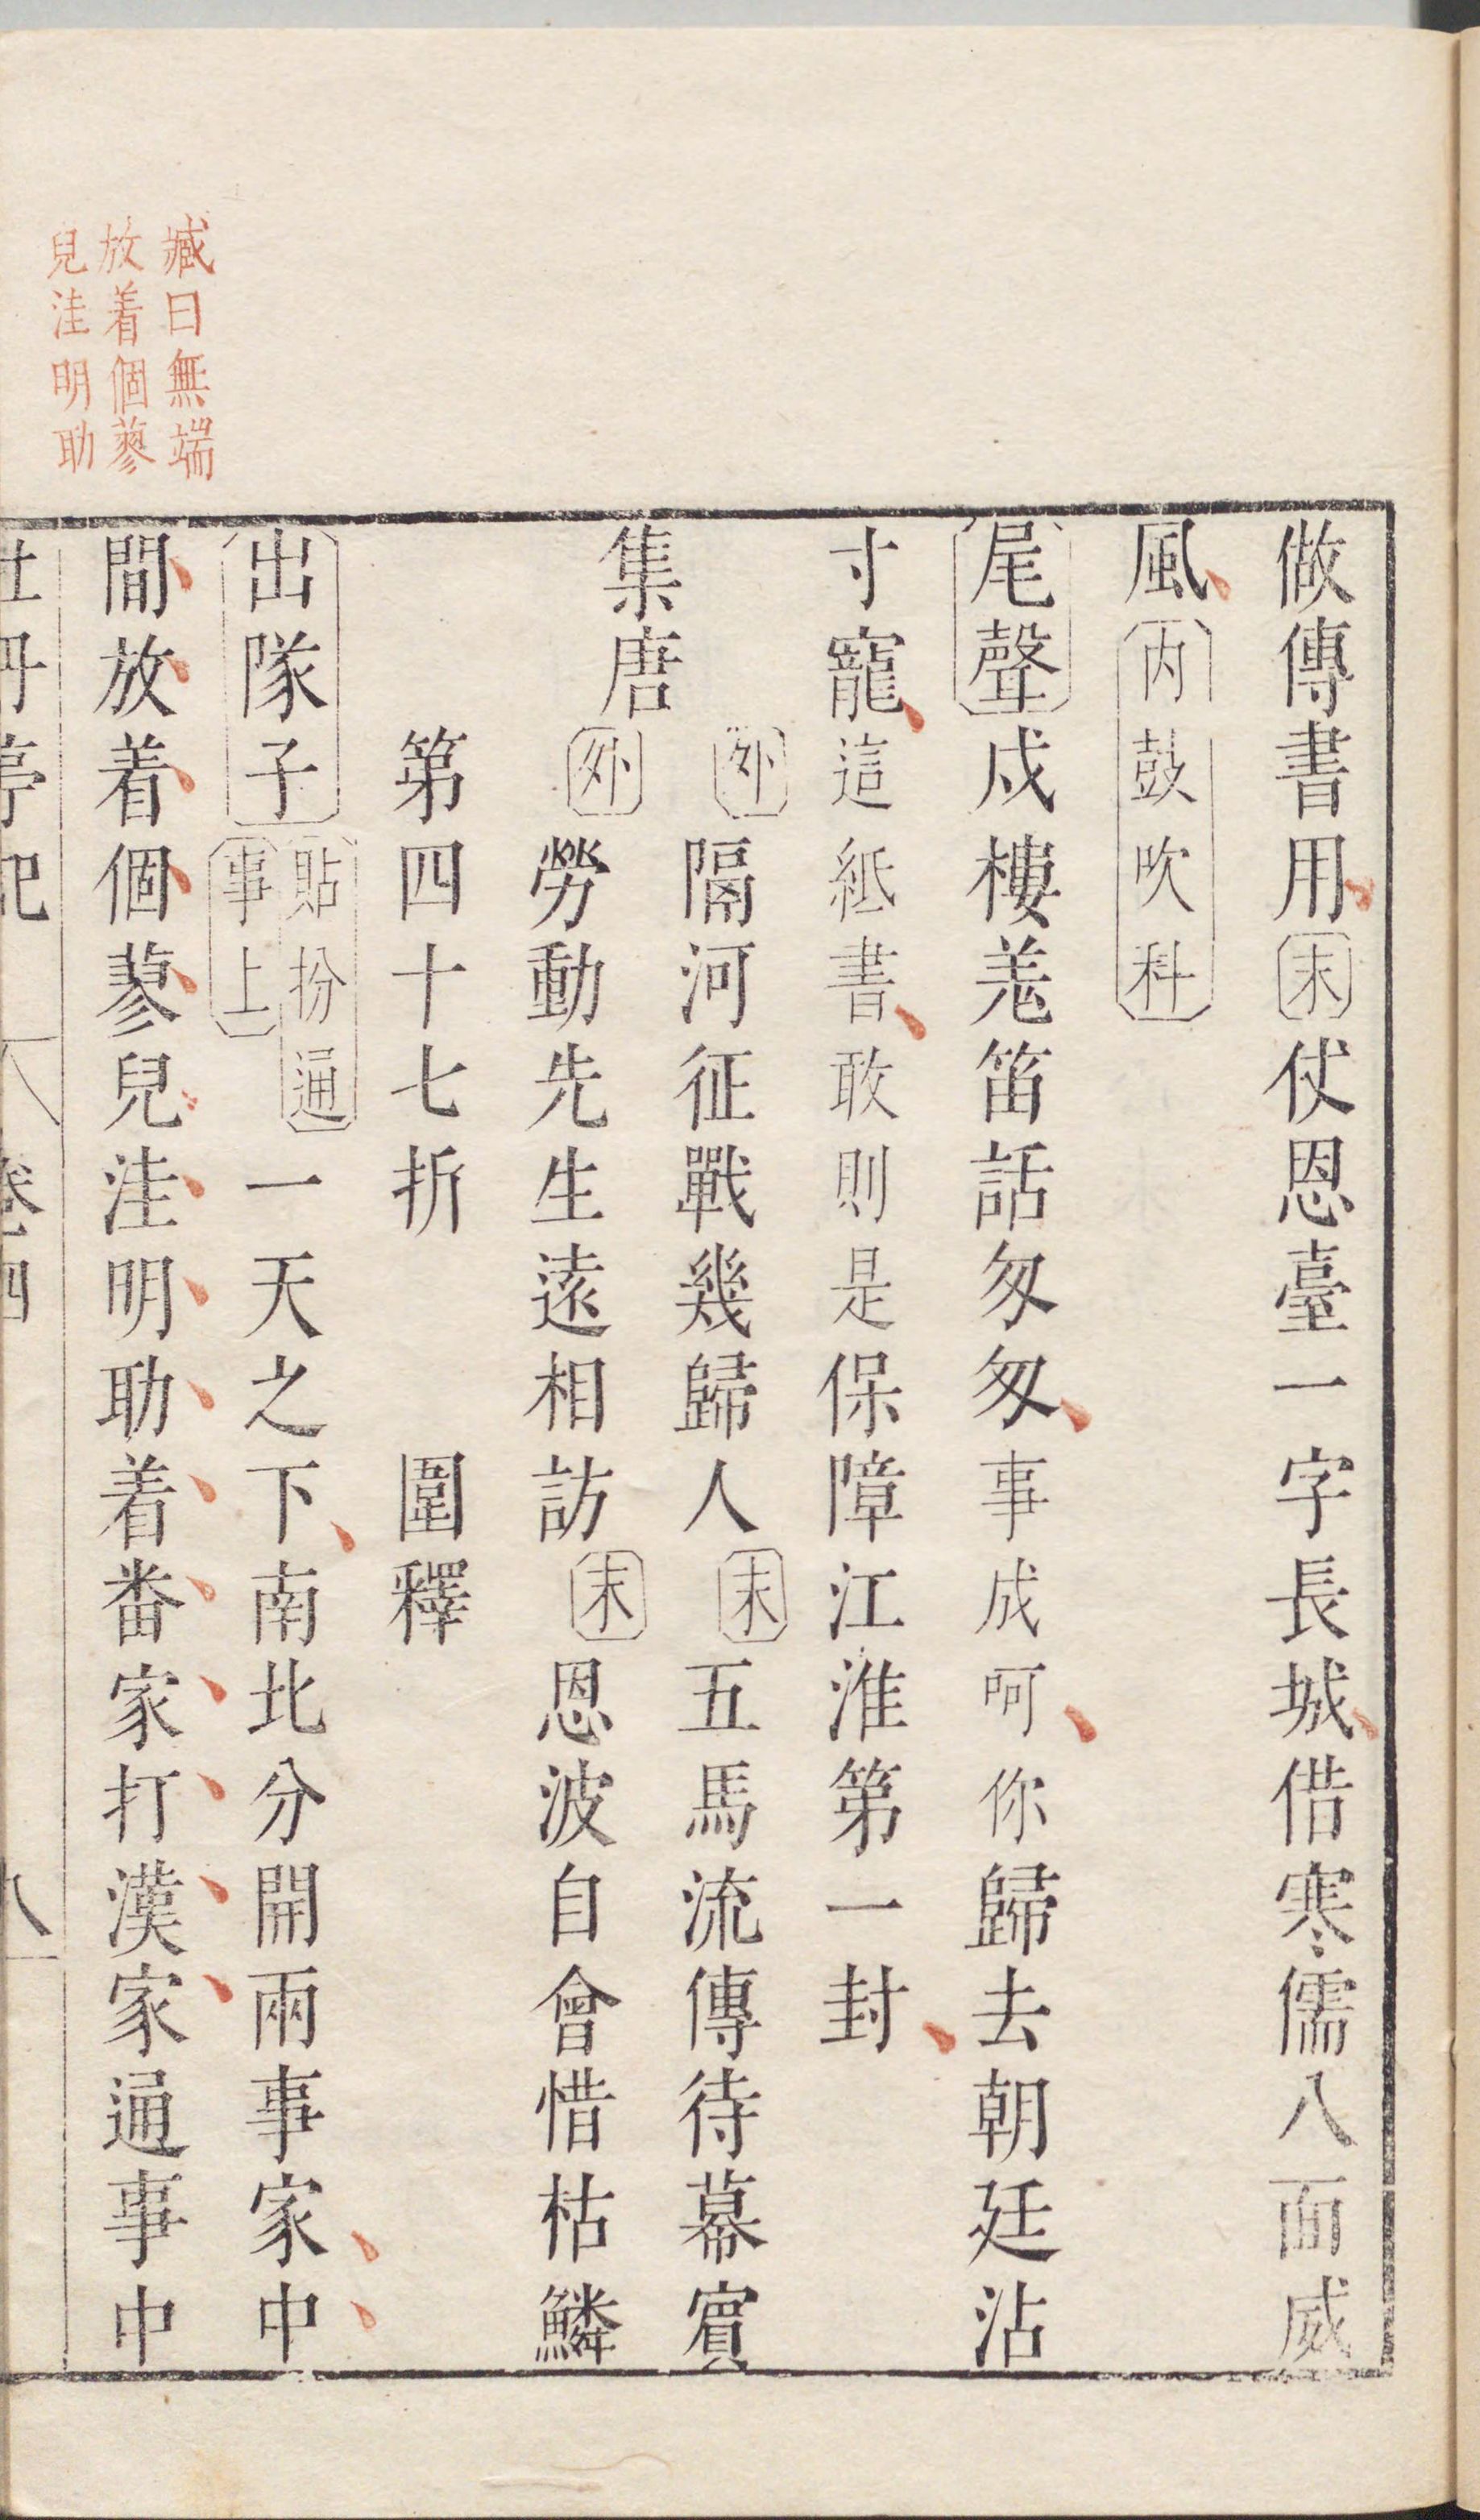 做傳書用末仗恩臺一字長城借寒儒八面威
風內鼓吹科
尾聲戍樓羗笛話匆匆事成呵你歸去朝廷沾
寸寵這紙書敢則是保障江淮第一封
集唐
外隔河征戰幾歸人末五馬流傳待幕賓
外勞動先生遠相訪末恩波自會惜枯鱗
第四十七折 圍釋
出隊子貼扮通事上一天之下南北分開兩事家中
間放着個蓼兒洼明助着番家打漢家通事中
臧曰無端
放着個蓼
兒洼明助
牡丹亭記 卷四 八